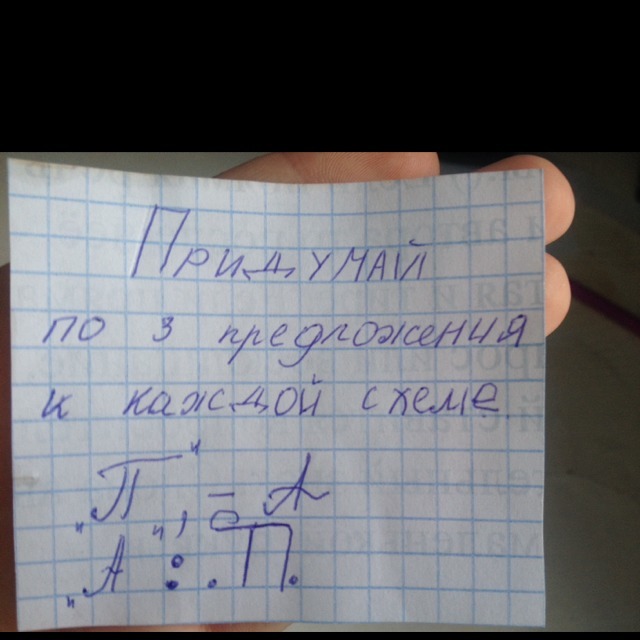 Придумай
по 3 предложения
к каждой схеме.
„П“, – А
„А“: П.